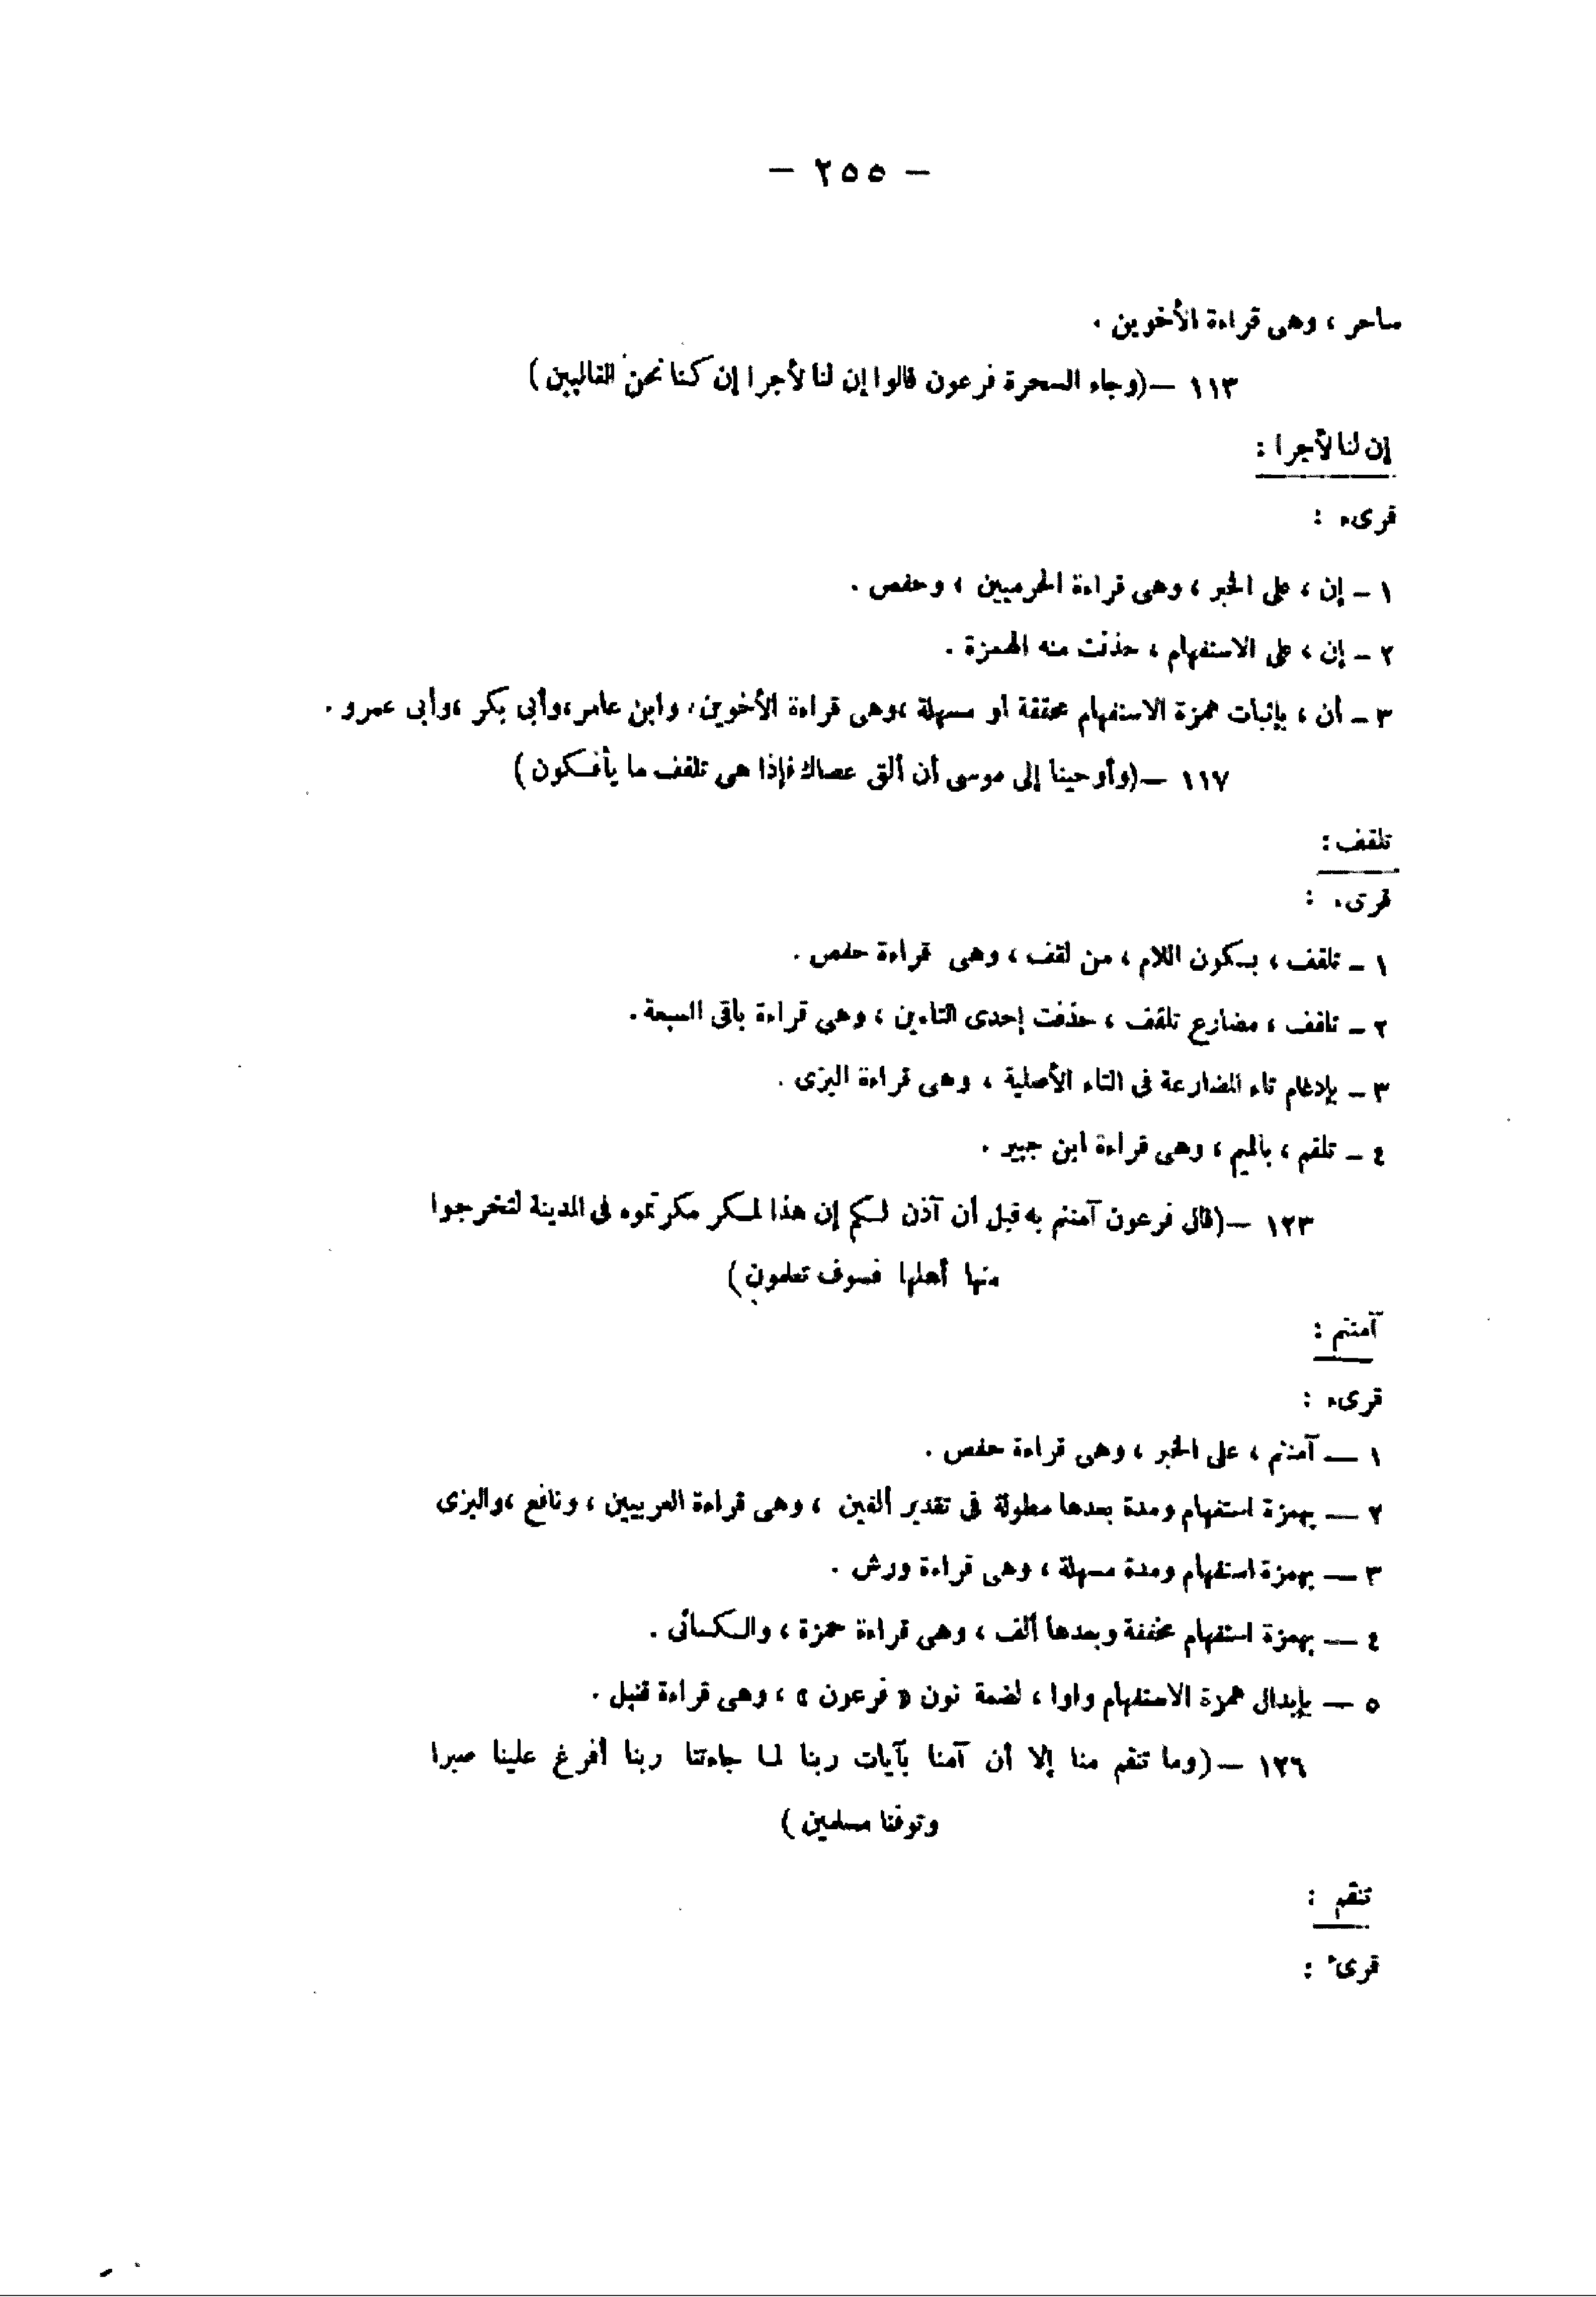 — ٢٥٥ —
ساحر ، وهى قراءة الأخوين .
١١٣ — (وجاء السحرة فرعون قالوا إن لنا لأجرا إن كنا نحن الغالبين )
إن لنا لأجرا :
قرىء :
١ – إن ، على الخبر ، وهى قراءة الحرميين ، وحفص .
٢ – إن ، على الاستفهام ، حذفت منه الهمزة .
٣ – أن ، بإثبات همزة الاستفهام محققة أو مسهلة ،وهى قراءة الأخوين، وابن عامر،وأبى بكر ،وأبى عمرو .
١١٧ — (وأوحينا إلى موسى أن ألق عصاك فإذا هى تلقف ما يأفكون )
تلقف :
قرىء :
١ – تلقف ، بسكون اللام ، من لقف ، وهى قراءة حفص .
٢ – تلقف ، مضارع تلقف ، حذفت إحدى التاءين ، وهى قراءة باقى السبعة .
٣ – بإدغام تاء المضارعة فى التاء الأصلية ، وهى قراءة البزى .
٤ – تلقم ، بالميم ، وهى قراءة ابن جبير .
١٢٣ — (قال فرعون آمنتم به قبل أن آذن لكم إن هذا لمكر مكرتموه فى المدينة لتخرجوا
منها أهلها فسوف تعلمون )
آمنتم :
قرىء :
١ — آمنتم ، على الخبر ، وهى قراءة حفص .
٢ — بهمزة استفهام ومدة بعدها مطولة فى تقدير ألفين ، وهى قراءة العربيين ، ونافع ،والبزى
٣ — بهمزة استفهام ومدة مسهلة ، وهى قراءة ورش .
٤ — بهمزة استفهام مخففة وبعدها ألف ، وهى قراءة حمزة ، والكسائى .
٥ — بإبدال همزة الاستفهام واوا ، لضمة نون « فرعون » ، وهى قراءة قنبل .
١٢٦ — (وما تنقم منا إلا أن آمنا بآيات ربنا لما جاءتنا ربنا أفرغ علينا صبرا
وتوفنا مسلمين )
تنقم :
قرئ :